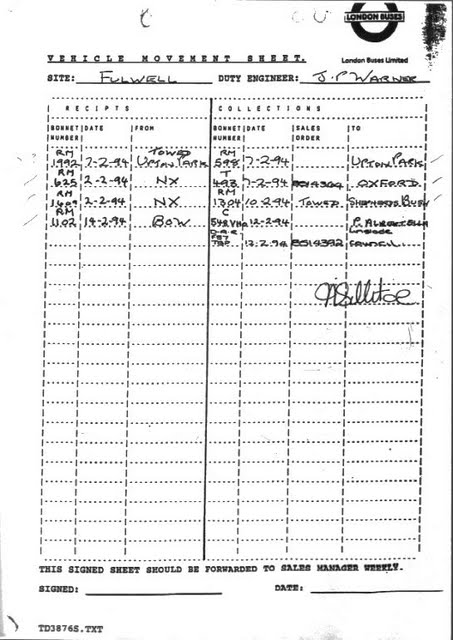 LONDON BUSES
London Buses Limited
VEHICLE MOVEMENT SHEET.
SITE: FULWELL DUTY ENGINEER: J.P WARNER
RECIPTS COLLECTIONS
BONNET NUMBER DATE FROM BONNET NUMBER DATE SALES ORDER TO
RM 1992 7-2-94 TOWED UPTON PARK RM 598 7-2-94 UPTON PARK
RM 625 2-2-94 NX T 493 7-2-94 OXFORD.
RM 2-2-94 NX RM 1304 10-2-94 TOWED SHEPHERDS BUSH
RM 1102 14-2-94 BOW C 12-2-94
12-2-94
THIS SIGNED SHEET SHOULD BE FORWARDED TO SALES MANAGER WEEKLY.
SIGNED: DATE:
TD3876S.TXT